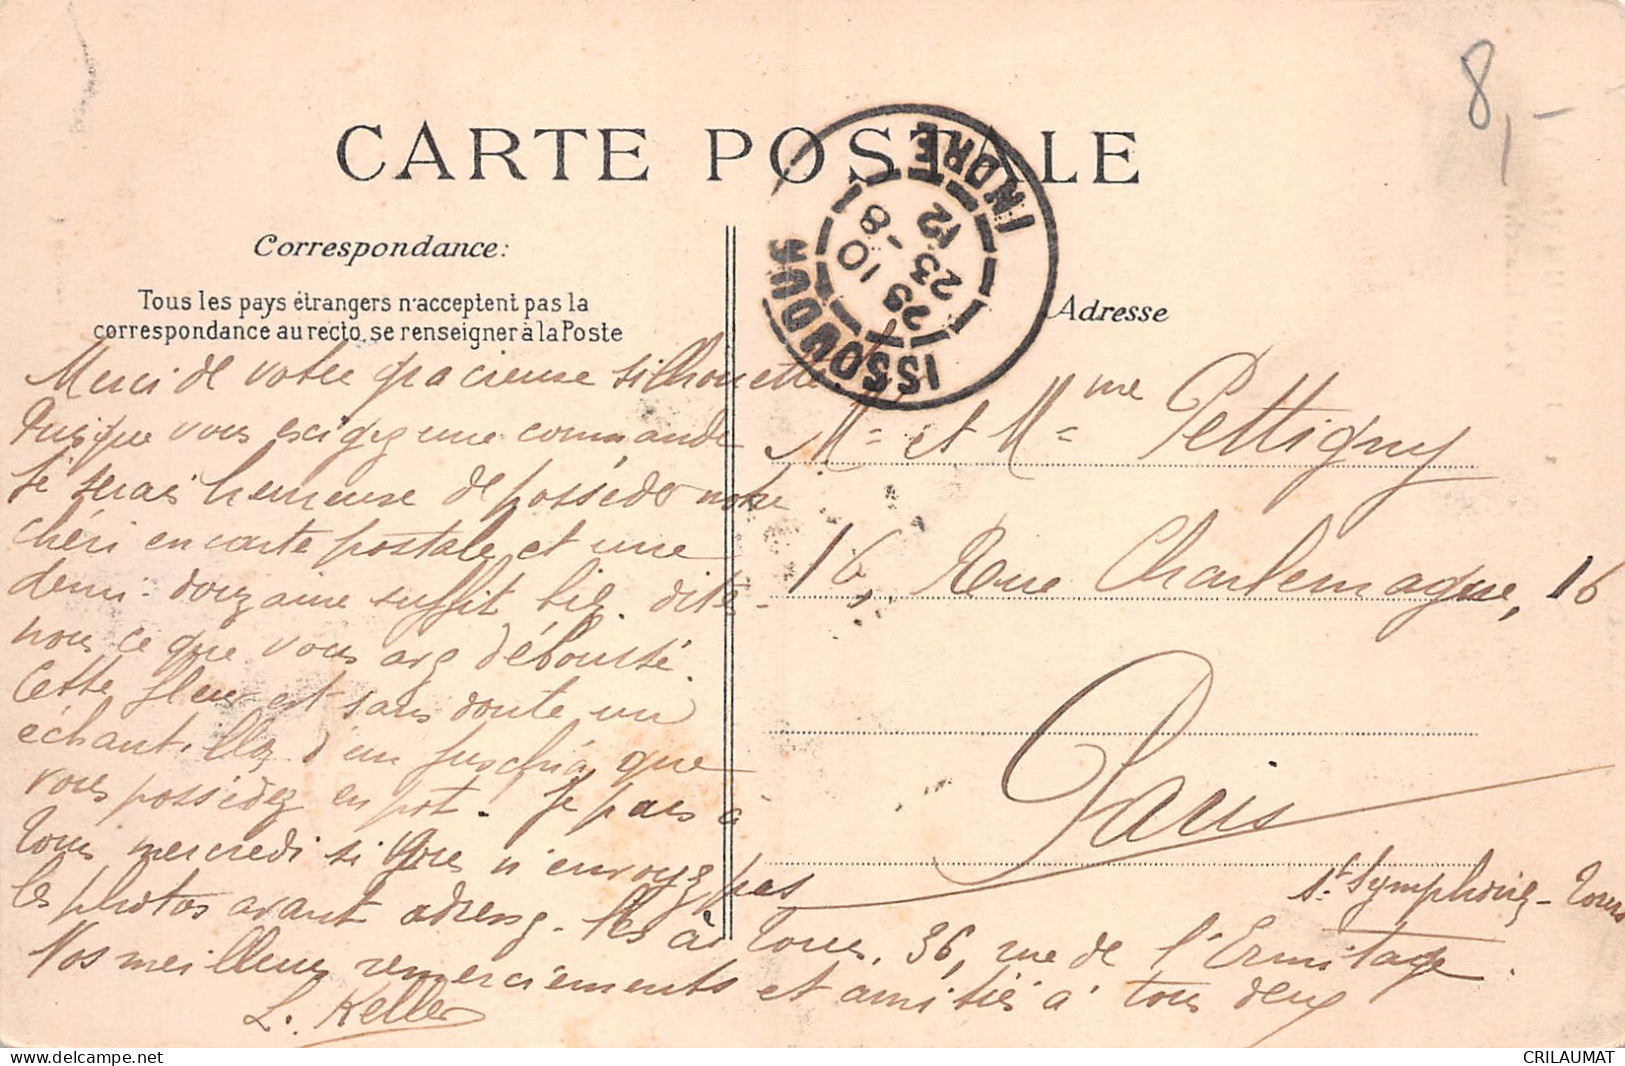 8,-
CARTE POSTALE
Correspondance:
Tous les pays étrangers n'acceptent pas la
correspondance au recto, se renseigner à la Poste
Adresse
ISSOUDUN
INDRE
10 -8
25 23 12
Merci de votre gracieuse silhouette
Puisque vous exigez une commande
Je serais heureuse de posséder notre
chéri en carte postale, et une
demi-douzaine suffit. dites-
nous ce que vous avez déboursé.
Cette fleur est sans doute un
échantillon d'un fuschia que
vous possédez en pot. Je pars à
Tours mercredi si vous n'envoyez pas
les photos avant adressez-les à Tours, 36, rue de l'Ermitage
St Symphorien - Tours
Nos meilleurs remerciements et amitiés à tous deux
L. Keller
Mr et Mme Pettigny
16, Rue Charlemagne, 16
Paris
CRILAUMAT